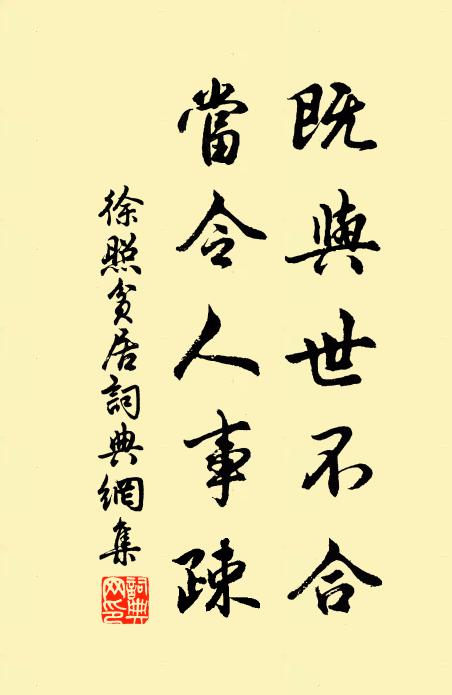 既與世不合
當令人事疎
徐照貧居詞典網集
詞典網印